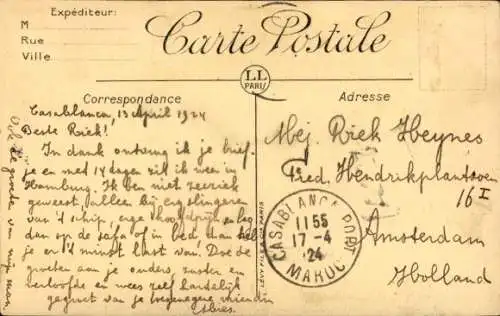 Expéditeur:
M
Rue
Ville
Carte Postale
LL
PARIS
Correspondance
Adresse
Casablanca, 13 April 1924
Beste Riek!
In dank ontving ik je brief
je en met 14 dagen zil ik weer in
Hamburg. Ik ben niet zeeziek
geweest, alleen bij
van 't schip, erge hoofdpijn en leg
dan op de sofa of in bed dan heb
je er 't minst last van. Doe de
groeten aan je ouders, zuster en
verloofde en wees zelf hartelijk
gegroet van je toegenegen vriendin
Ook de groeten van mijn man
Mej. Riek Heynes
Fred. Hendrikplantsoen
16 I
Amsterdam
Holland
CASABLANCA PORT
1155
17-4
24
MAROC